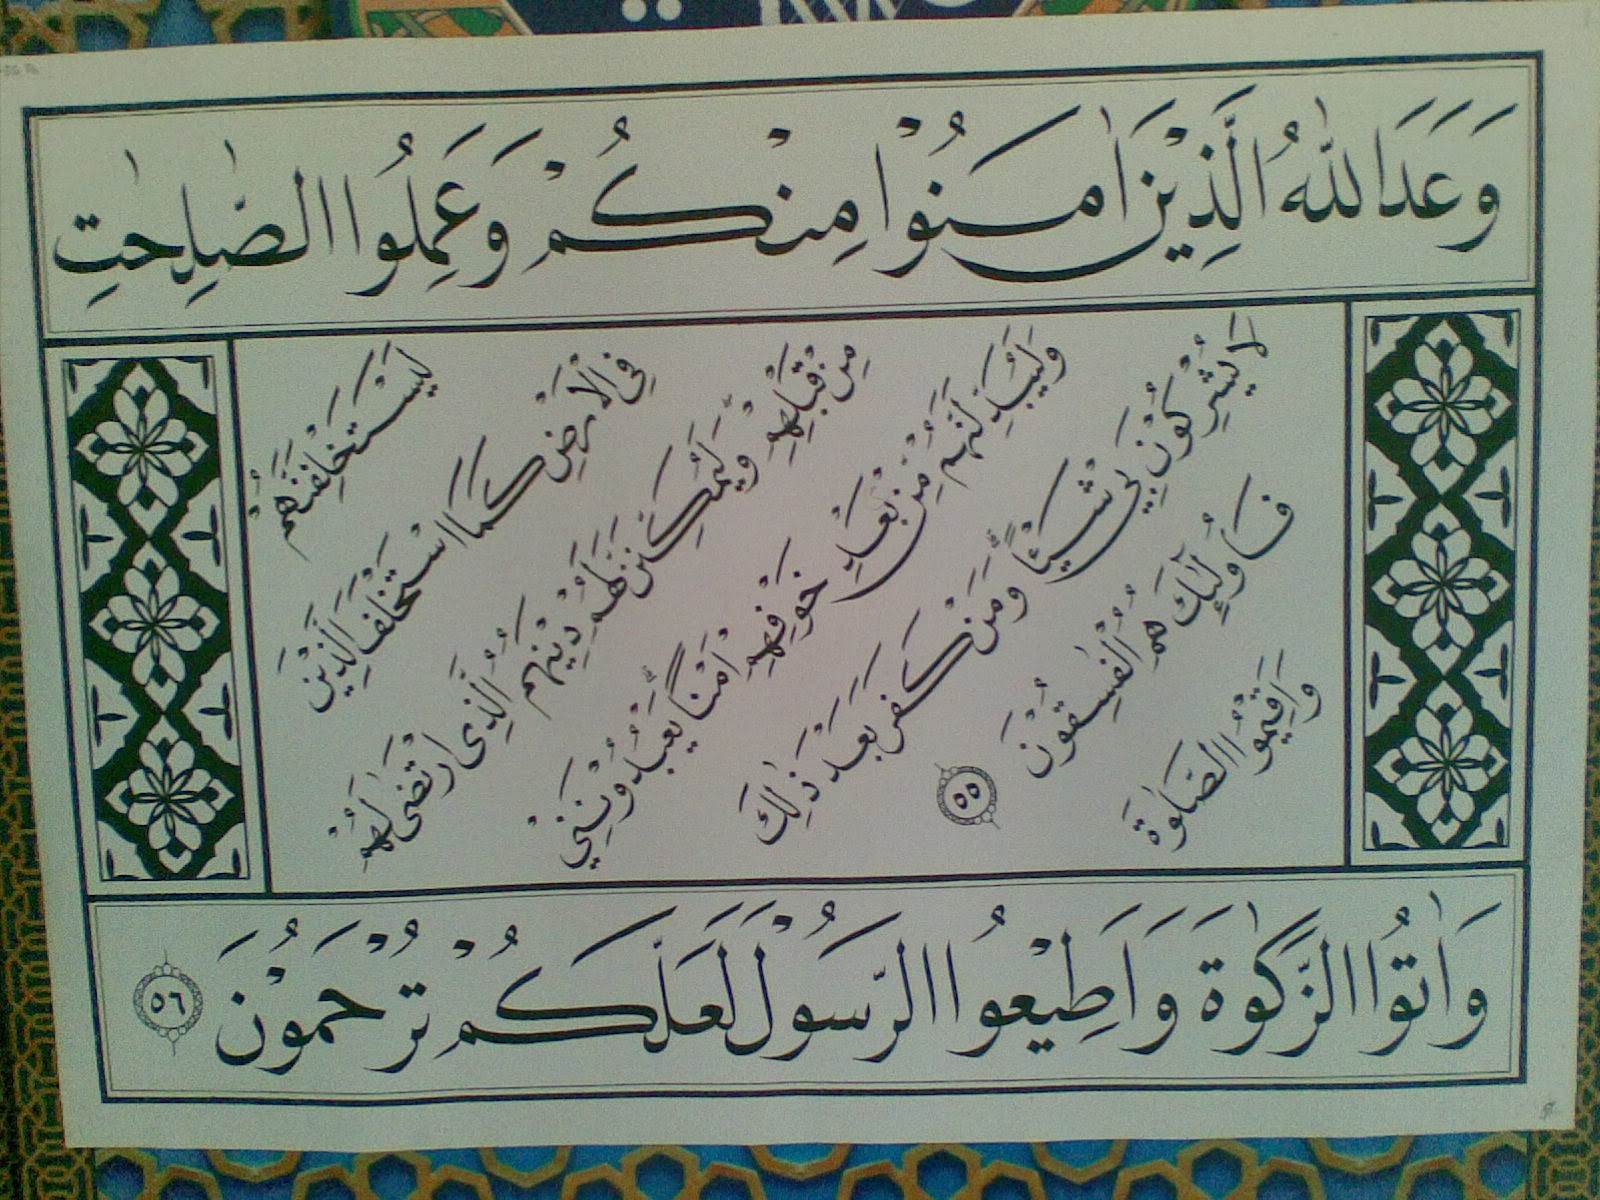 وَعَدَ اللّٰهُ الَّذِيْنَ اٰمَنُوْا مِنْكُمْ وَعَمِلُوا الصّٰلِحٰتِ
لَيَسْتَخْلِفَنَّهُمْ
فِى الْاَرْضِ كَمَا اسْتَخْلَفَ الَّذِيْنَ
مِنْ قَبْلِهِمْ وَلَيُمَكِّنَنَّ لَهُمْ دِيْنَهُمُ الَّذِى ارْتَضٰى لَهُمْ
وَلَيُبَدِّلَنَّهُمْ مِّنْ بَعْدِ خَوْفِهِمْ اَمْنًا يَعْبُدُوْنَنِيْ
لَا يُشْرِكُوْنَ بِيْ شَيْـًٔا وَمَنْ كَفَرَ بَعْدَ ذٰلِكَ
فَاُولٰٓئِكَ هُمُ الْفٰسِقُوْنَ ٥٥
وَاَقِيْمُوا الصَّلٰوةَ
وَاٰتُوا الزَّكٰوةَ وَاَطِيْعُوا الرَّسُوْلَ لَعَلَّكُمْ تُرْحَمُوْنَ ٥٦